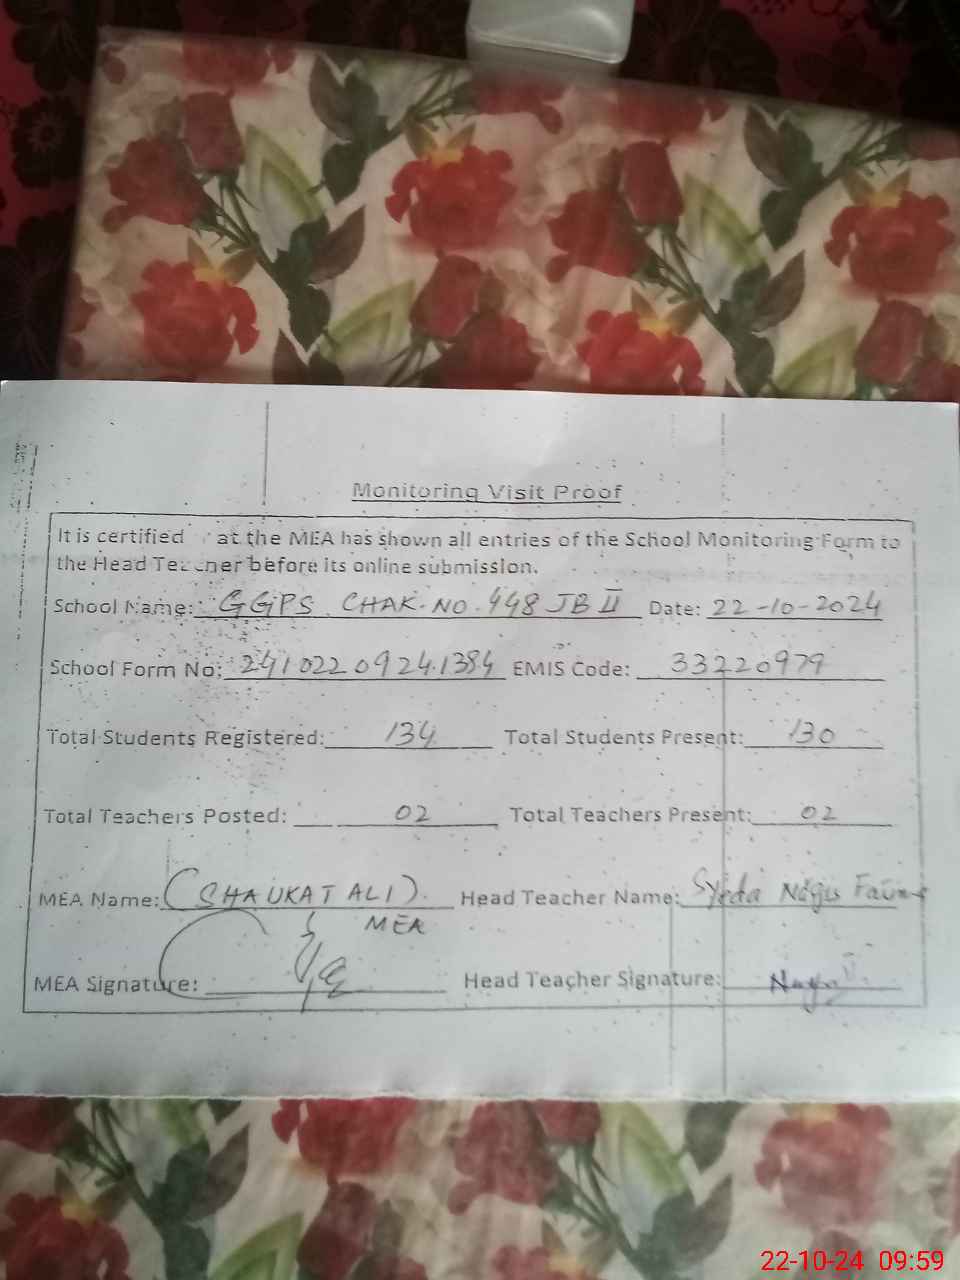 Monitoring Visit Proof
It is certified at the MEA has shown all entries of the School Monitoring Form to
the Head Teacher before its online submission.
School Name: GGPS CHAK. NO. 448 JB II Date: 22-10-2024
School Form No: 2410220924.1384 EMIS Code: 33220979
Total Students Registered: 134 Total Students Present: 130
Total Teachers Posted: 02 Total Teachers Present: 02
MEA Name: (SHAUKAT ALI). Head Teacher Name: Syeda
MEA
MEA Signature: Head Teacher Signature:
22-10-24 09:59